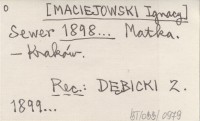 [MACIEJOWSKI Ignacy]
Sewer 1898... Matka.
— Kraków.
Rec.: DĘBICKI Z.
1899...